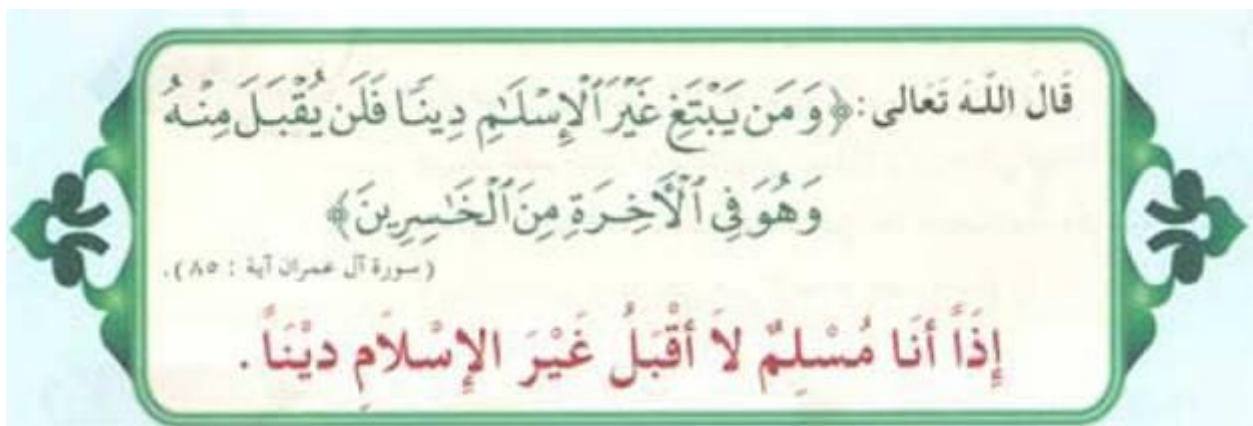 قَالَ اللَّهُ تَعَالَى : ﴿وَمَن يَبْتَغِ غَيْرَ ٱلْإِسْلَٰمِ دِينًا فَلَن يُقْبَلَ مِنْهُ
وَهُوَ فِى ٱلْأَخِرَةِ مِنَ ٱلْخَٰسِرِينَ﴾
(سورة آل عمران آية : ٨٥).
إِذَاً أَنَا مُسْلِمٌ لاَ أَقْبَلُ غَيْرَ الإِسْلاَمِ دِيْنَاً .